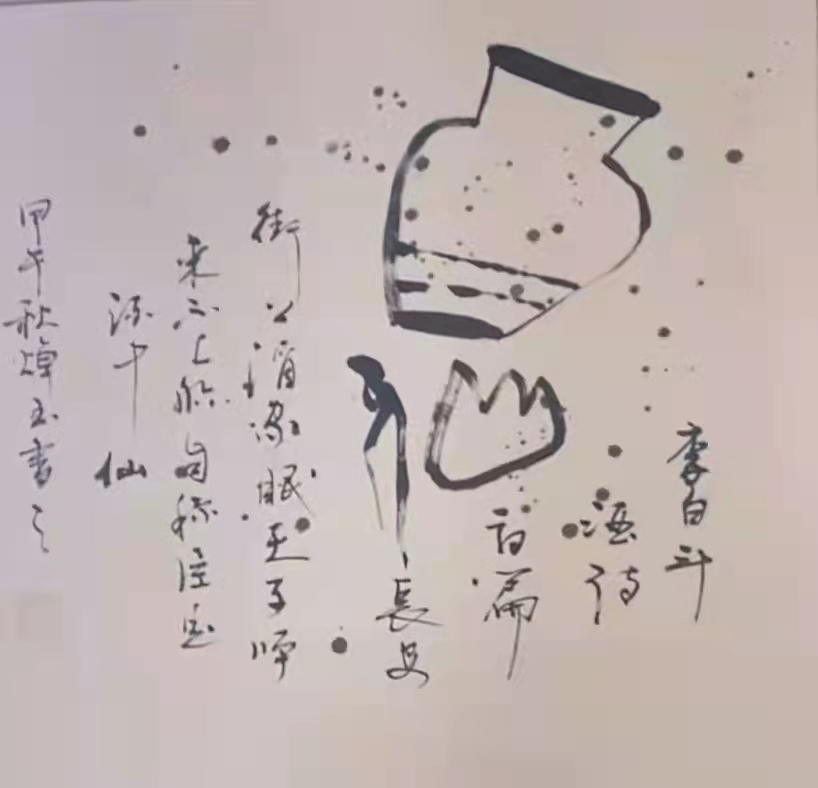 李白斗
酒诗
百篇
長安
街上酒家眠天子呼
来不上船自称臣是
酒中仙
甲午秋焯玉書之